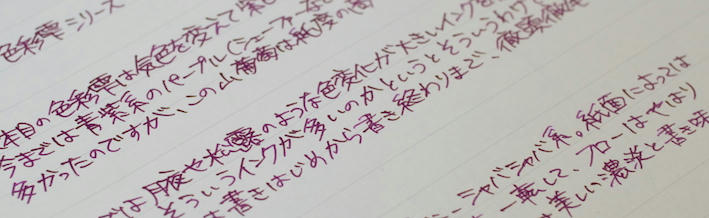 色彩雫シリーズ
本目の色彩雫は気色を変えて紫
今までは青紫系のパープル(シェーファーなど
多かったのですが、この山葡萄は純度の高
は月夜や松露のような色変化が大きいインクを
そういうインクが多いのかというとそういうわけ
は書きはじめから書き終わりまで、徹頭徹尾
シャバシャバ系。紙面によっては
一転して、フローはやはり
美しい濃淡と書き味